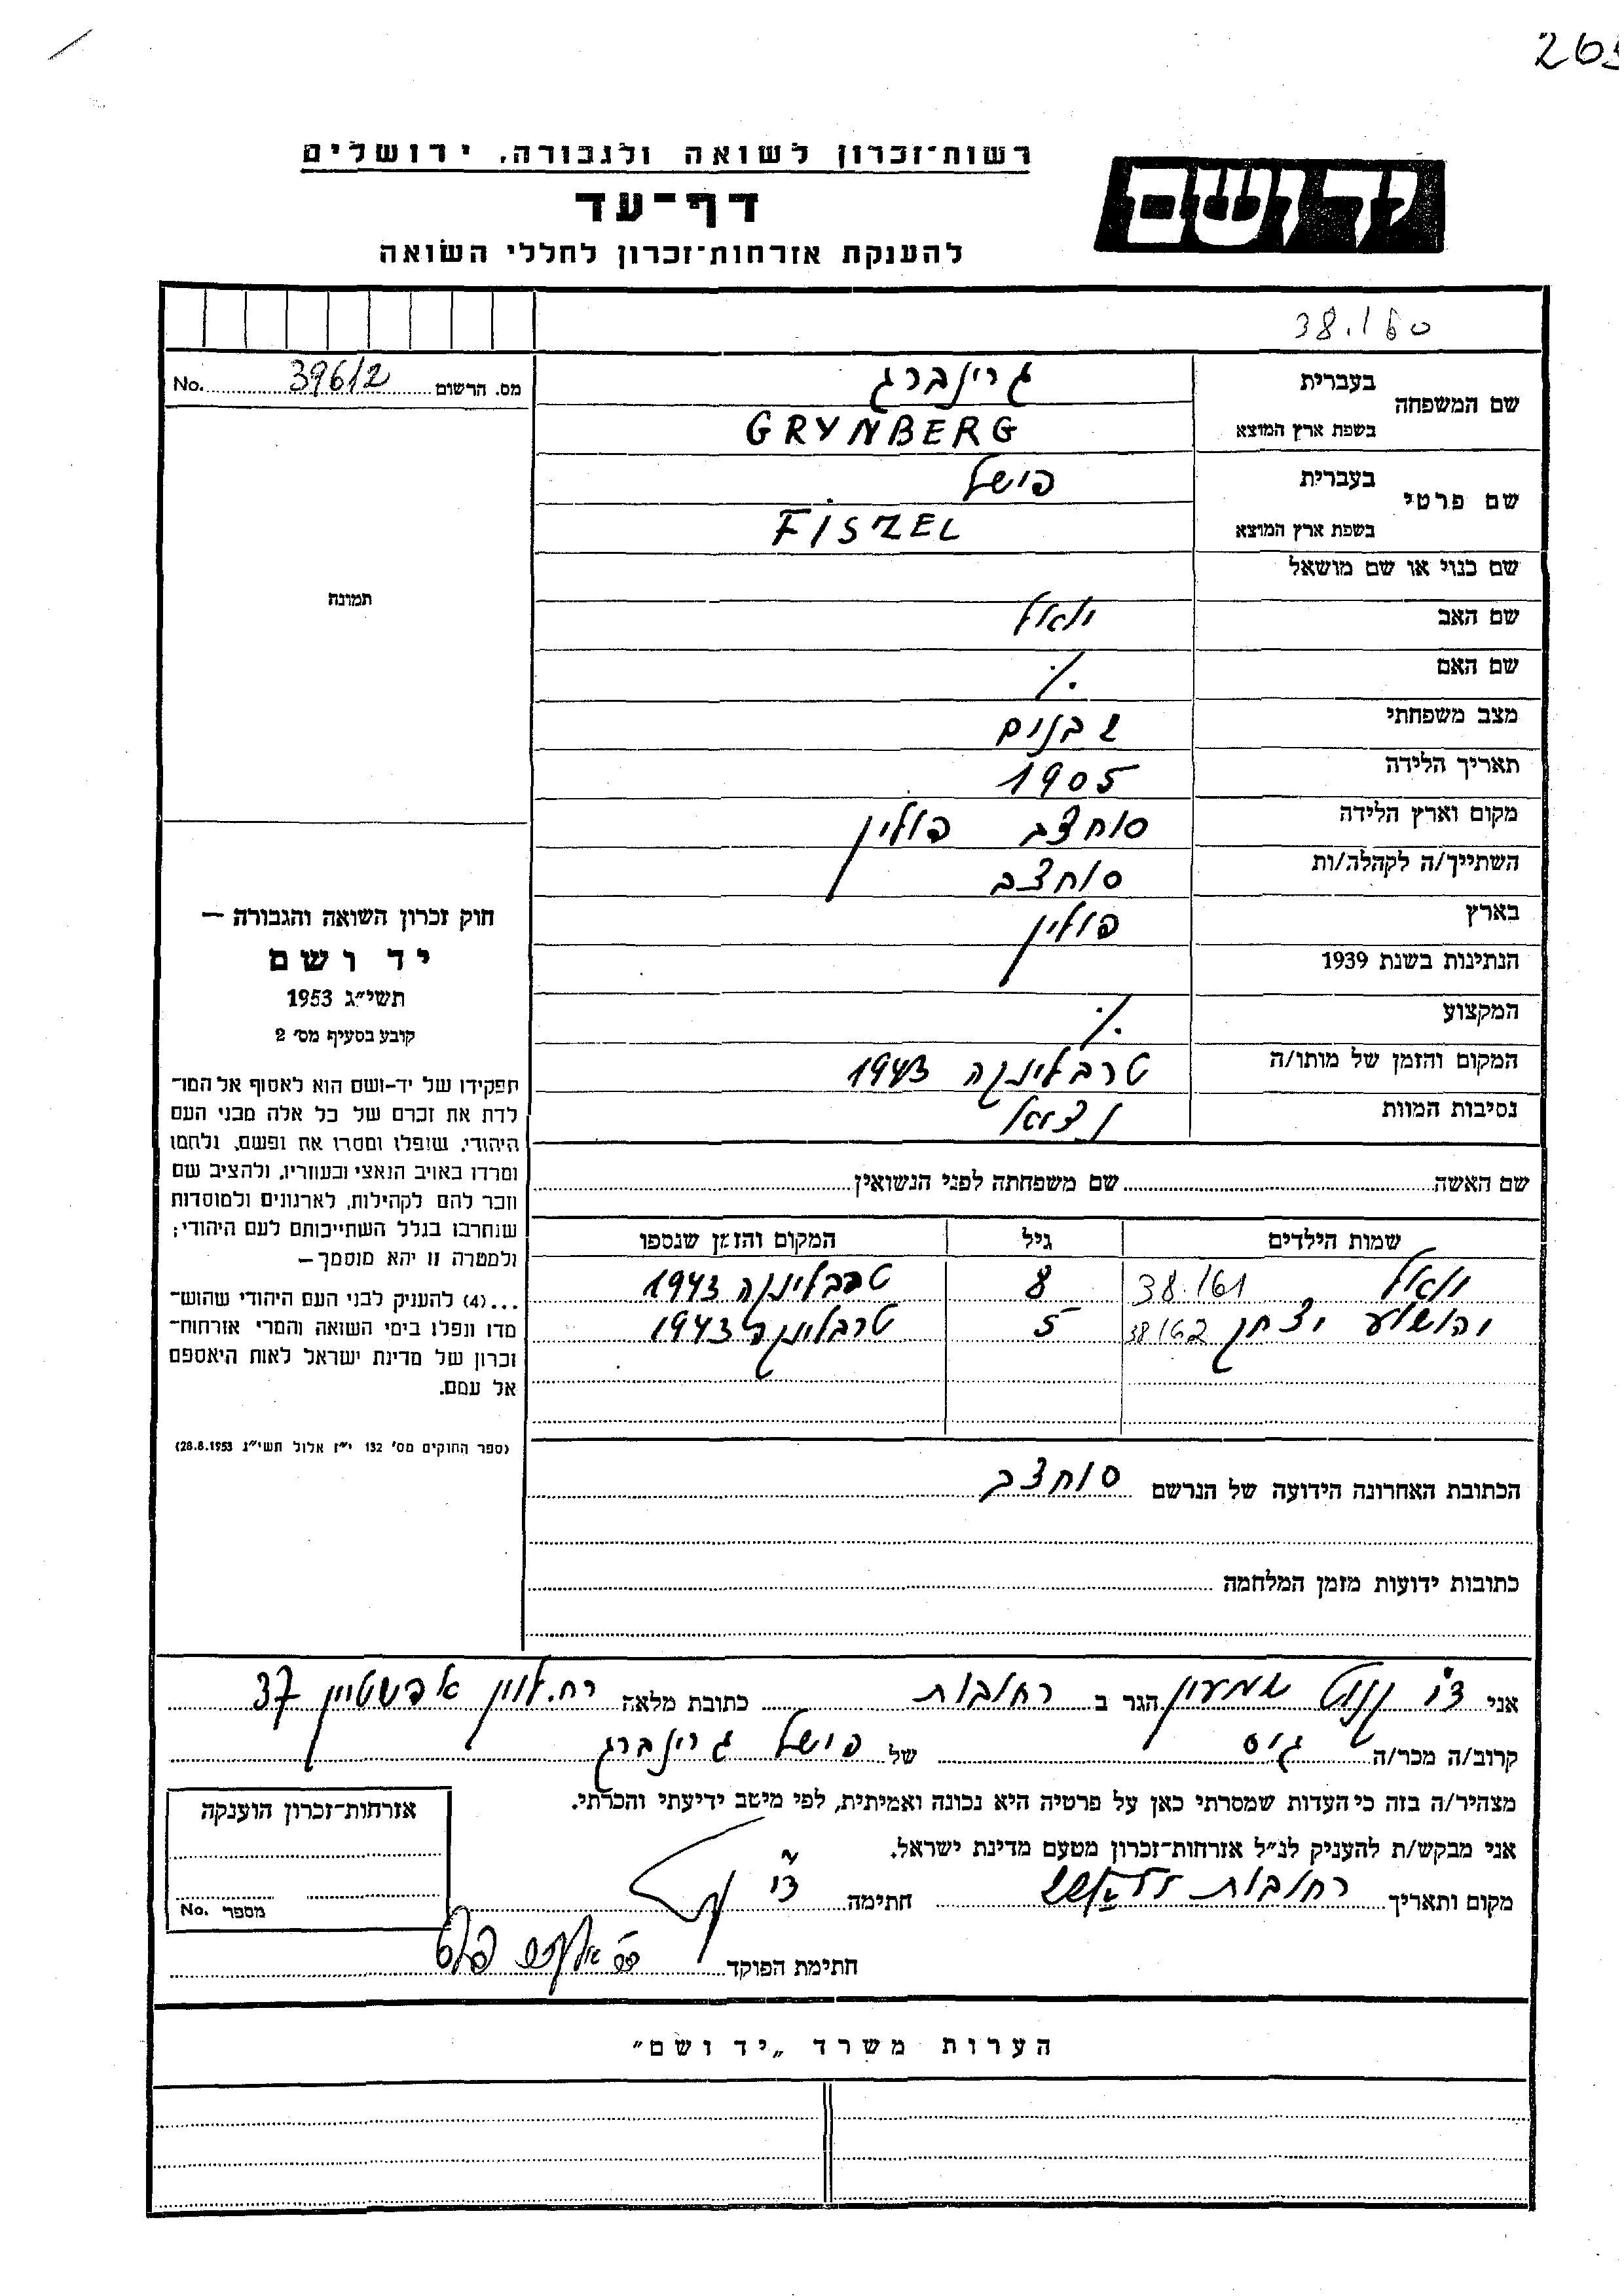 רשות־זכרון לשואה ולגבורה, ירושלים
יד ושם
דף־עד
להענקת אזרחות־זכרון לחללי השואה
38.160
מס. הרשום 39612 No.
שם המשפחה בעברית גרינברג
בשפת ארץ המוצא GRYNBERG
שם פרטי בעברית פישל
בשפת ארץ המוצא FISZEL
שם כנוי או שם מושאל
תמונה
שם האב יואל
שם האם ./.
מצב משפחתי 2 בנים
תאריך הלידה 1905
מקום וארץ הלידה סוחצב פולין
השתייך/ה לקהלה/ות סוחצב
בארץ פולין
הנתינות בשנת 1939
המקצוע ./.
המקום והזמן של מותו/ה טרבלינקה 1943
נסיבות המוות
שם האשה שם משפחתה לפני הנשואין
שמות הילדים גיל המקום והזמן שנספו
יואל 38.161 8 טרבלינקה 1943
יהושוע יצחק 38162 5 טרבלינקה 1943
חוק זכרון השואה והגבורה —
יד ושם
תשי״ג 1953
קובע בסעיף מס׳ 2
תפקידו של יד-ושם הוא לאסוף אל המו־
לדת את זכרם של כל אלה מבני העם
היהודי, שנפלו ומסרו את נפשם, נלחמו
ומרדו באויב הנאצי ובעוזריו, ולהציב שם
וזכר להם לקהילות, לארגונים ולמוסדות
שנחרבו בגלל השתייכותם לעם היהודי;
ולמטרה זו יהא מוסמך—
...(4) להעניק לבני העם היהודי שהוש־
מדו ונפלו בימי השואה והמרי אזרחות־
זכרון של מדינת ישראל לאות היאספם
אל עמם.
(ספר החוקים מס׳ 132 י״ז אלול תשי״ג 28.8.1953)
הכתובת האחרונה הידועה של הנרשם סוחצב
כתובות ידועות מזמן המלחמה
אני שמעון הגר ב רחובות כתובת מלאה רח. לוין אפשטיין 37
קרוב/ה מכר/ה גיס של פישל גרינברג
מצהיר/ה בזה כי העדות שמסרתי כאן על פרטיה היא נכונה ואמיתית, לפי מיטב ידיעתי והכרתי.
אני מבקש/ת להעניק לנ״ל אזרחות־זכרון מטעם מדינת ישראל.
מקום ותאריך רחובות חתימה
חתימת הפוקד
אזרחות־זכרון הוענקה
מספר No.
הערות משרד „יד ושם״